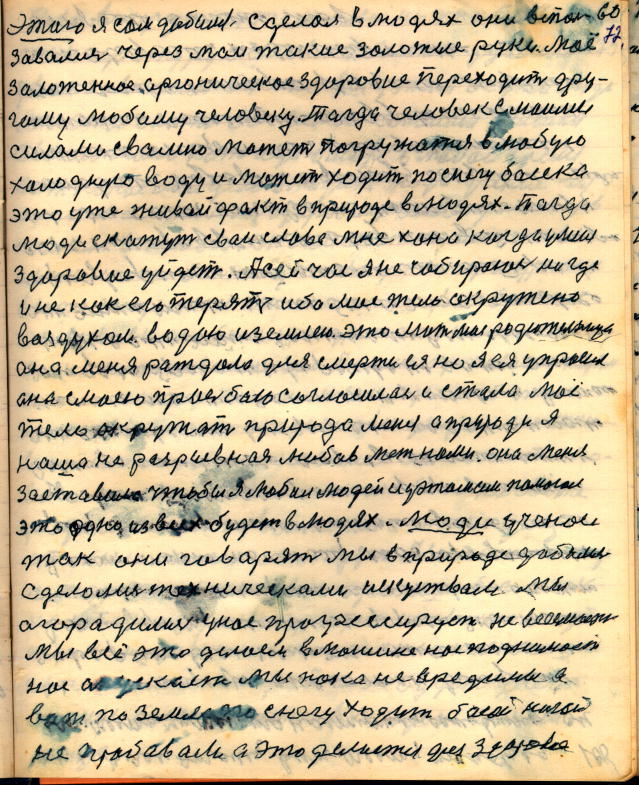 Этаго я сам добился. сделал в людях они встали 60
завалися через мои такие золотые руки. Моё 77.
заложенное органическое здоровие переходит дру-
гому любому человеку. Тагда человек с моими
силами свабмно может погружатя в любую
халодную воду и может ходит по снегу басека
это уже живай факт в природе в людях. Тагда
люди скажут сваи слова мне хана когда у мня
здоровие уйдет. А сей час я не собираюс нигде
и не как его терят ибо мае тело акружено
ваздухом. водаю и землею. это мат моя родительница
она меня раждала для смерти
она с маею прозбаю согласилас и стала моё
тело акружат природа меня а природу я
наша не разрывная любов меж нами. она меня
заставила чтобы я любил людей и у этом им помогал
это одно из всех будет в людях. Люди ученое
так они говарят мы в природе добилис
сделалис техническами искуствам мы
огорадилис у нас прогрессирует не весомость
мы всё это делаем в машине нас поднимает
нас апускает мы пока не вредимы а
вот по земле по снегу ходит басой нагой
не пробавали а это делается для здоровя